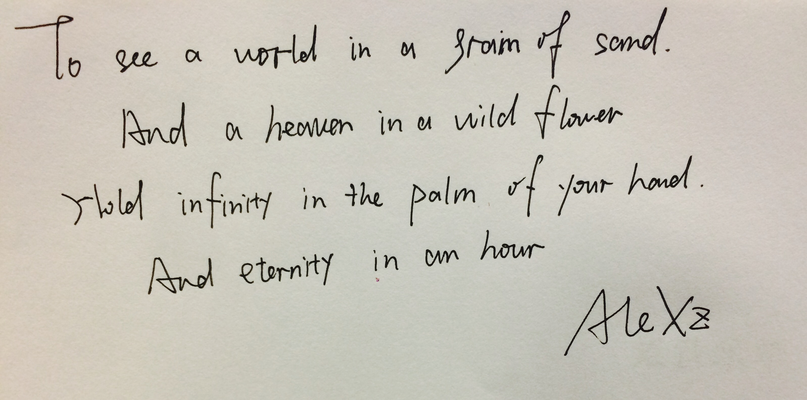 To see a world in a grain of sand.
And a heaven in a wild flower
Hold infinity in the palm of your hand.
And eternity in an hour
AleXz